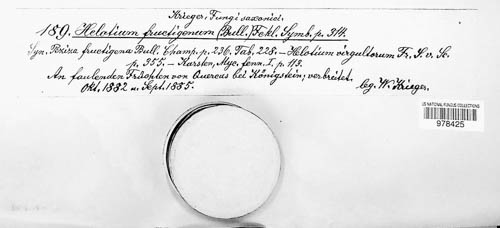 Krieger, Fungi saxonici.
189. Helotium fructigenum (Bull.) Fckl. Symb. p. 314.
Syn. Peziza fructigena Bull. Champ. p. 236. Tab. 228. – Helotium virgultorum Fr. S. v. Sc.
p. 355. – Karsten, Myc. fenn. I. p. 113.
An faulenden Früchten von Quercus bei Königstein; verbreitet.
Okt. 1882 u. Sept. 1885.
leg. W. Krieger.
US NATIONAL FUNGUS COLLECTIONS
978425